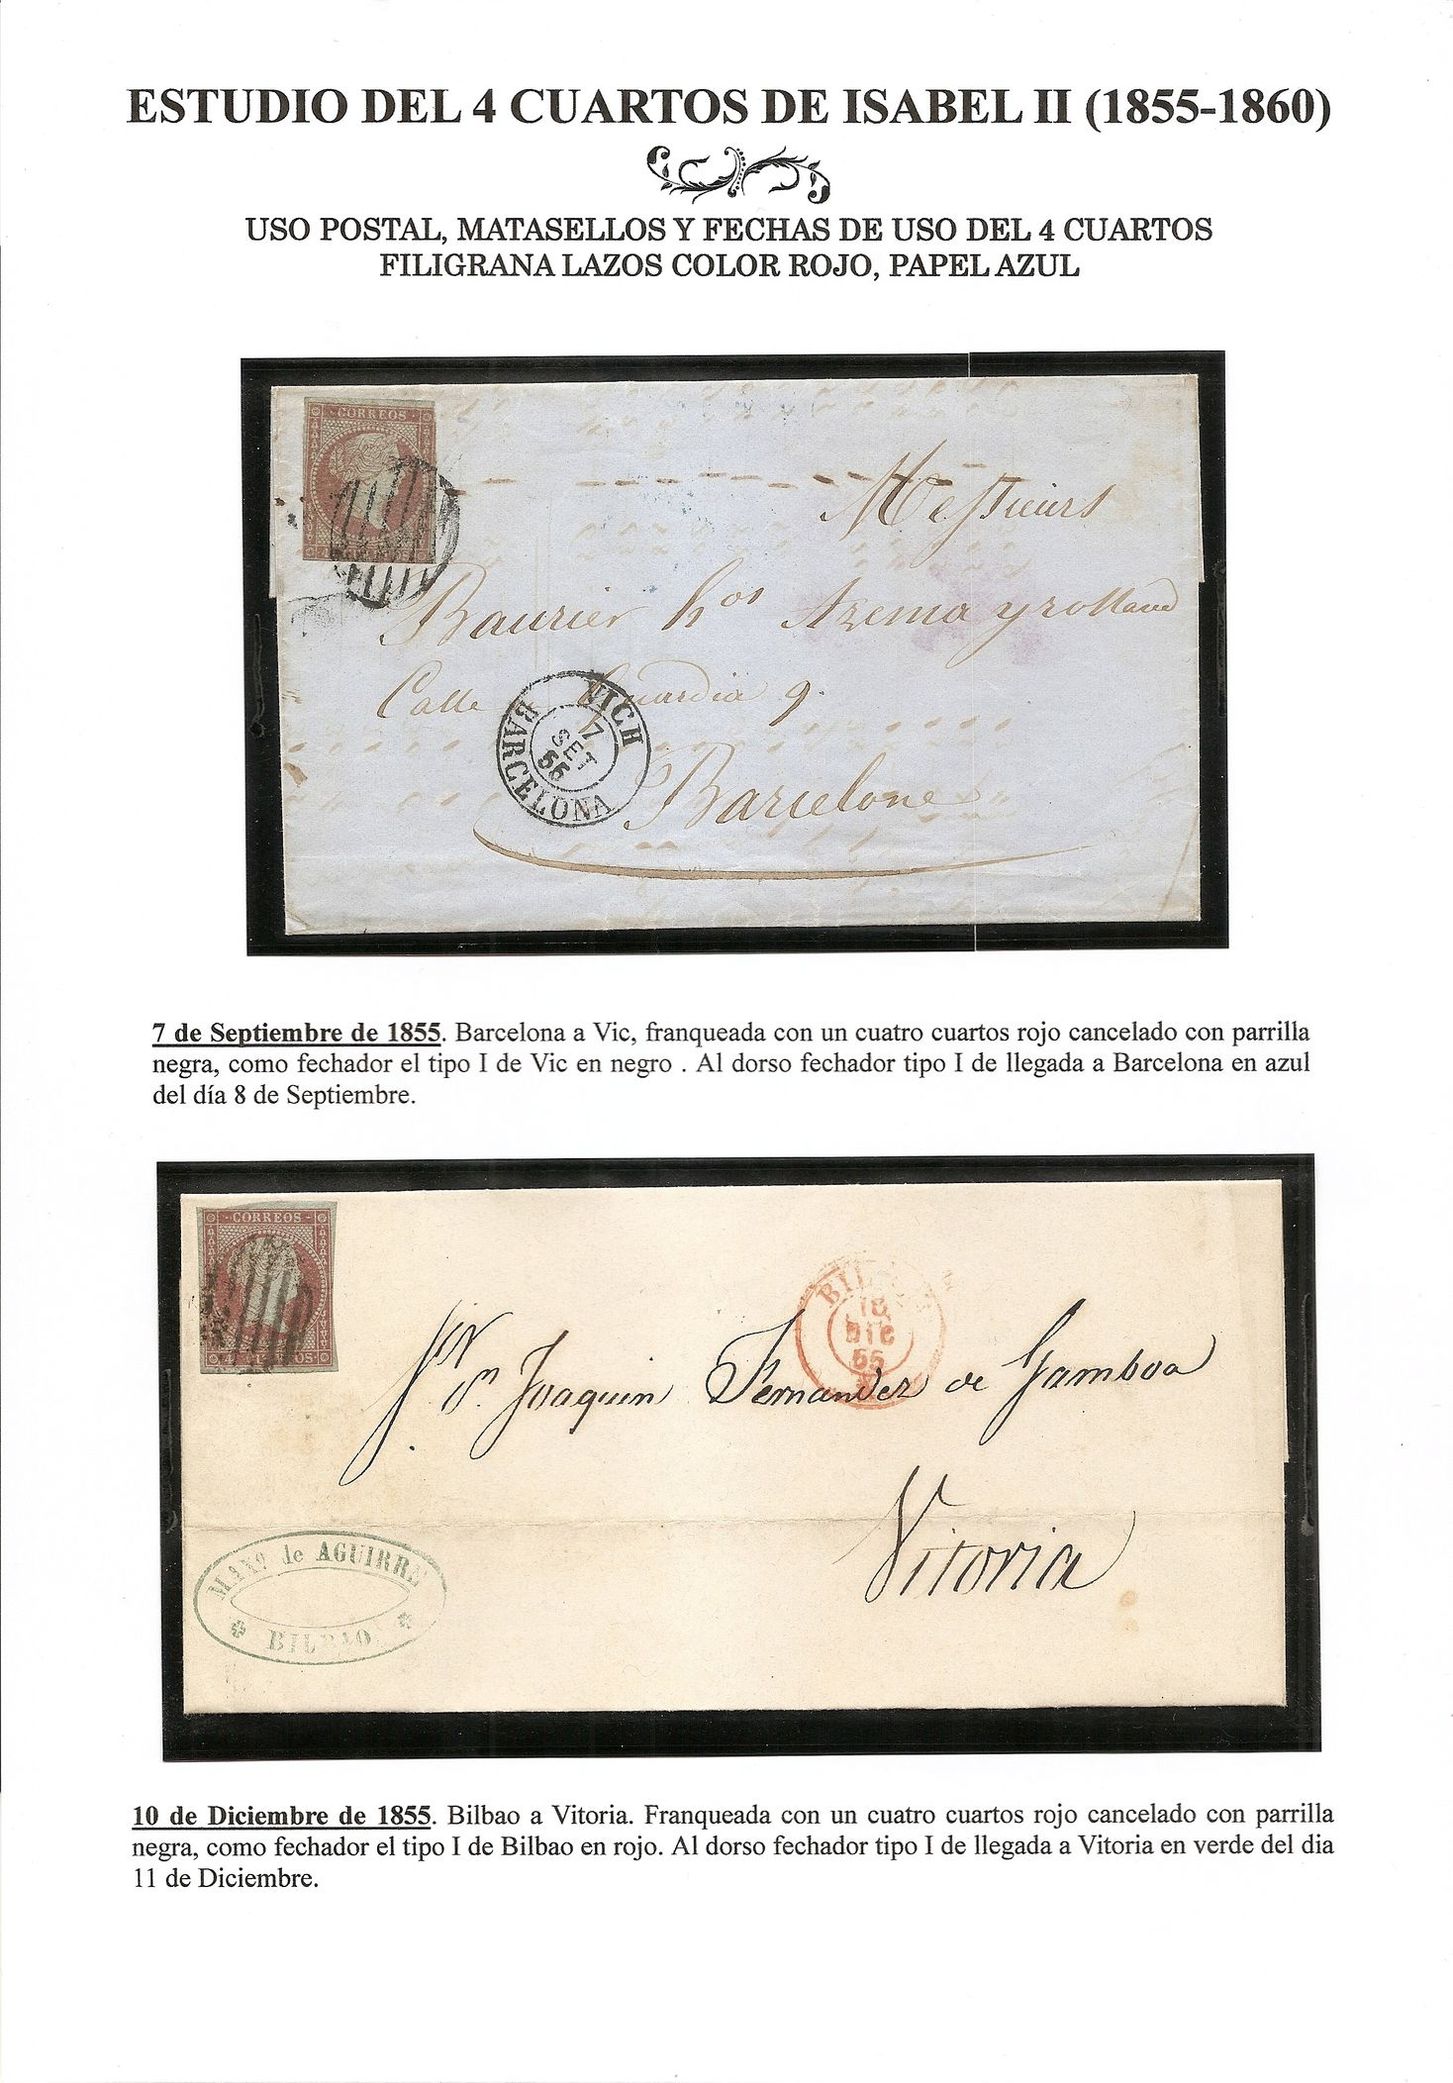 ESTUDIO DEL 4 CUARTOS DE ISABEL II (1855-1860)
USO POSTAL, MATASELLOS Y FECHAS DE USO DEL 4 CUARTOS
FILIGRANA LAZOS COLOR ROJO, PAPEL AZUL
CORREOS
Messieurs
Baurier hos Azema y rolland
Calle Guardia 9.
VICH
7
SET
55
BARCELONA
Barcelone
7 de Septiembre de 1855. Barcelona a Vic, franqueada con un cuatro cuartos rojo cancelado con parrilla
negra, como fechador el tipo I de Vic en negro . Al dorso fechador tipo I de llegada a Barcelona en azul
del día 8 de Septiembre.
CORREOS
4 CUARTOS
BILBAO
10
DIC
55
Joaquin Fernandez de Gamboa
Vitoria
MANO de AGUIRRE
BILBAO
10 de Diciembre de 1855. Bilbao a Vitoria. Franqueada con un cuatro cuartos rojo cancelado con parrilla
negra, como fechador el tipo I de Bilbao en rojo. Al dorso fechador tipo I de llegada a Vitoria en verde del dia
11 de Diciembre.